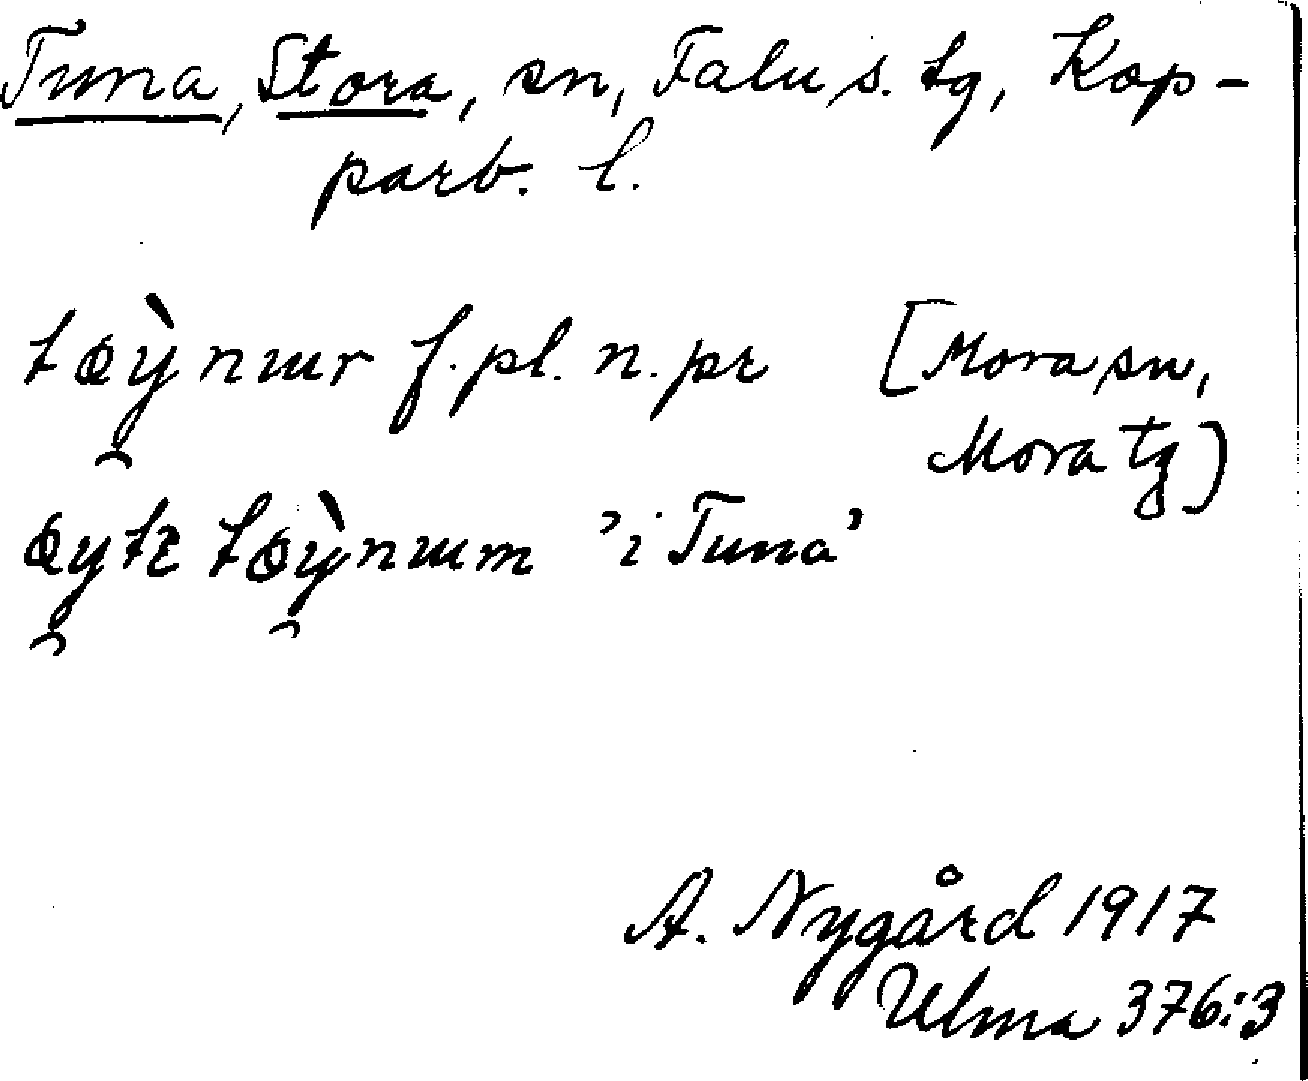 Tuna, Stora, sn, Falu s. tg, Kop-
parb. l.
tœỳ̯nɯr f. pl. n. pr [Mora sn,
Mora tg]
œy̯tɛ tœỳ̯nɯm 'i Tuna'
A. Nygård 1917
Ulma 376:3